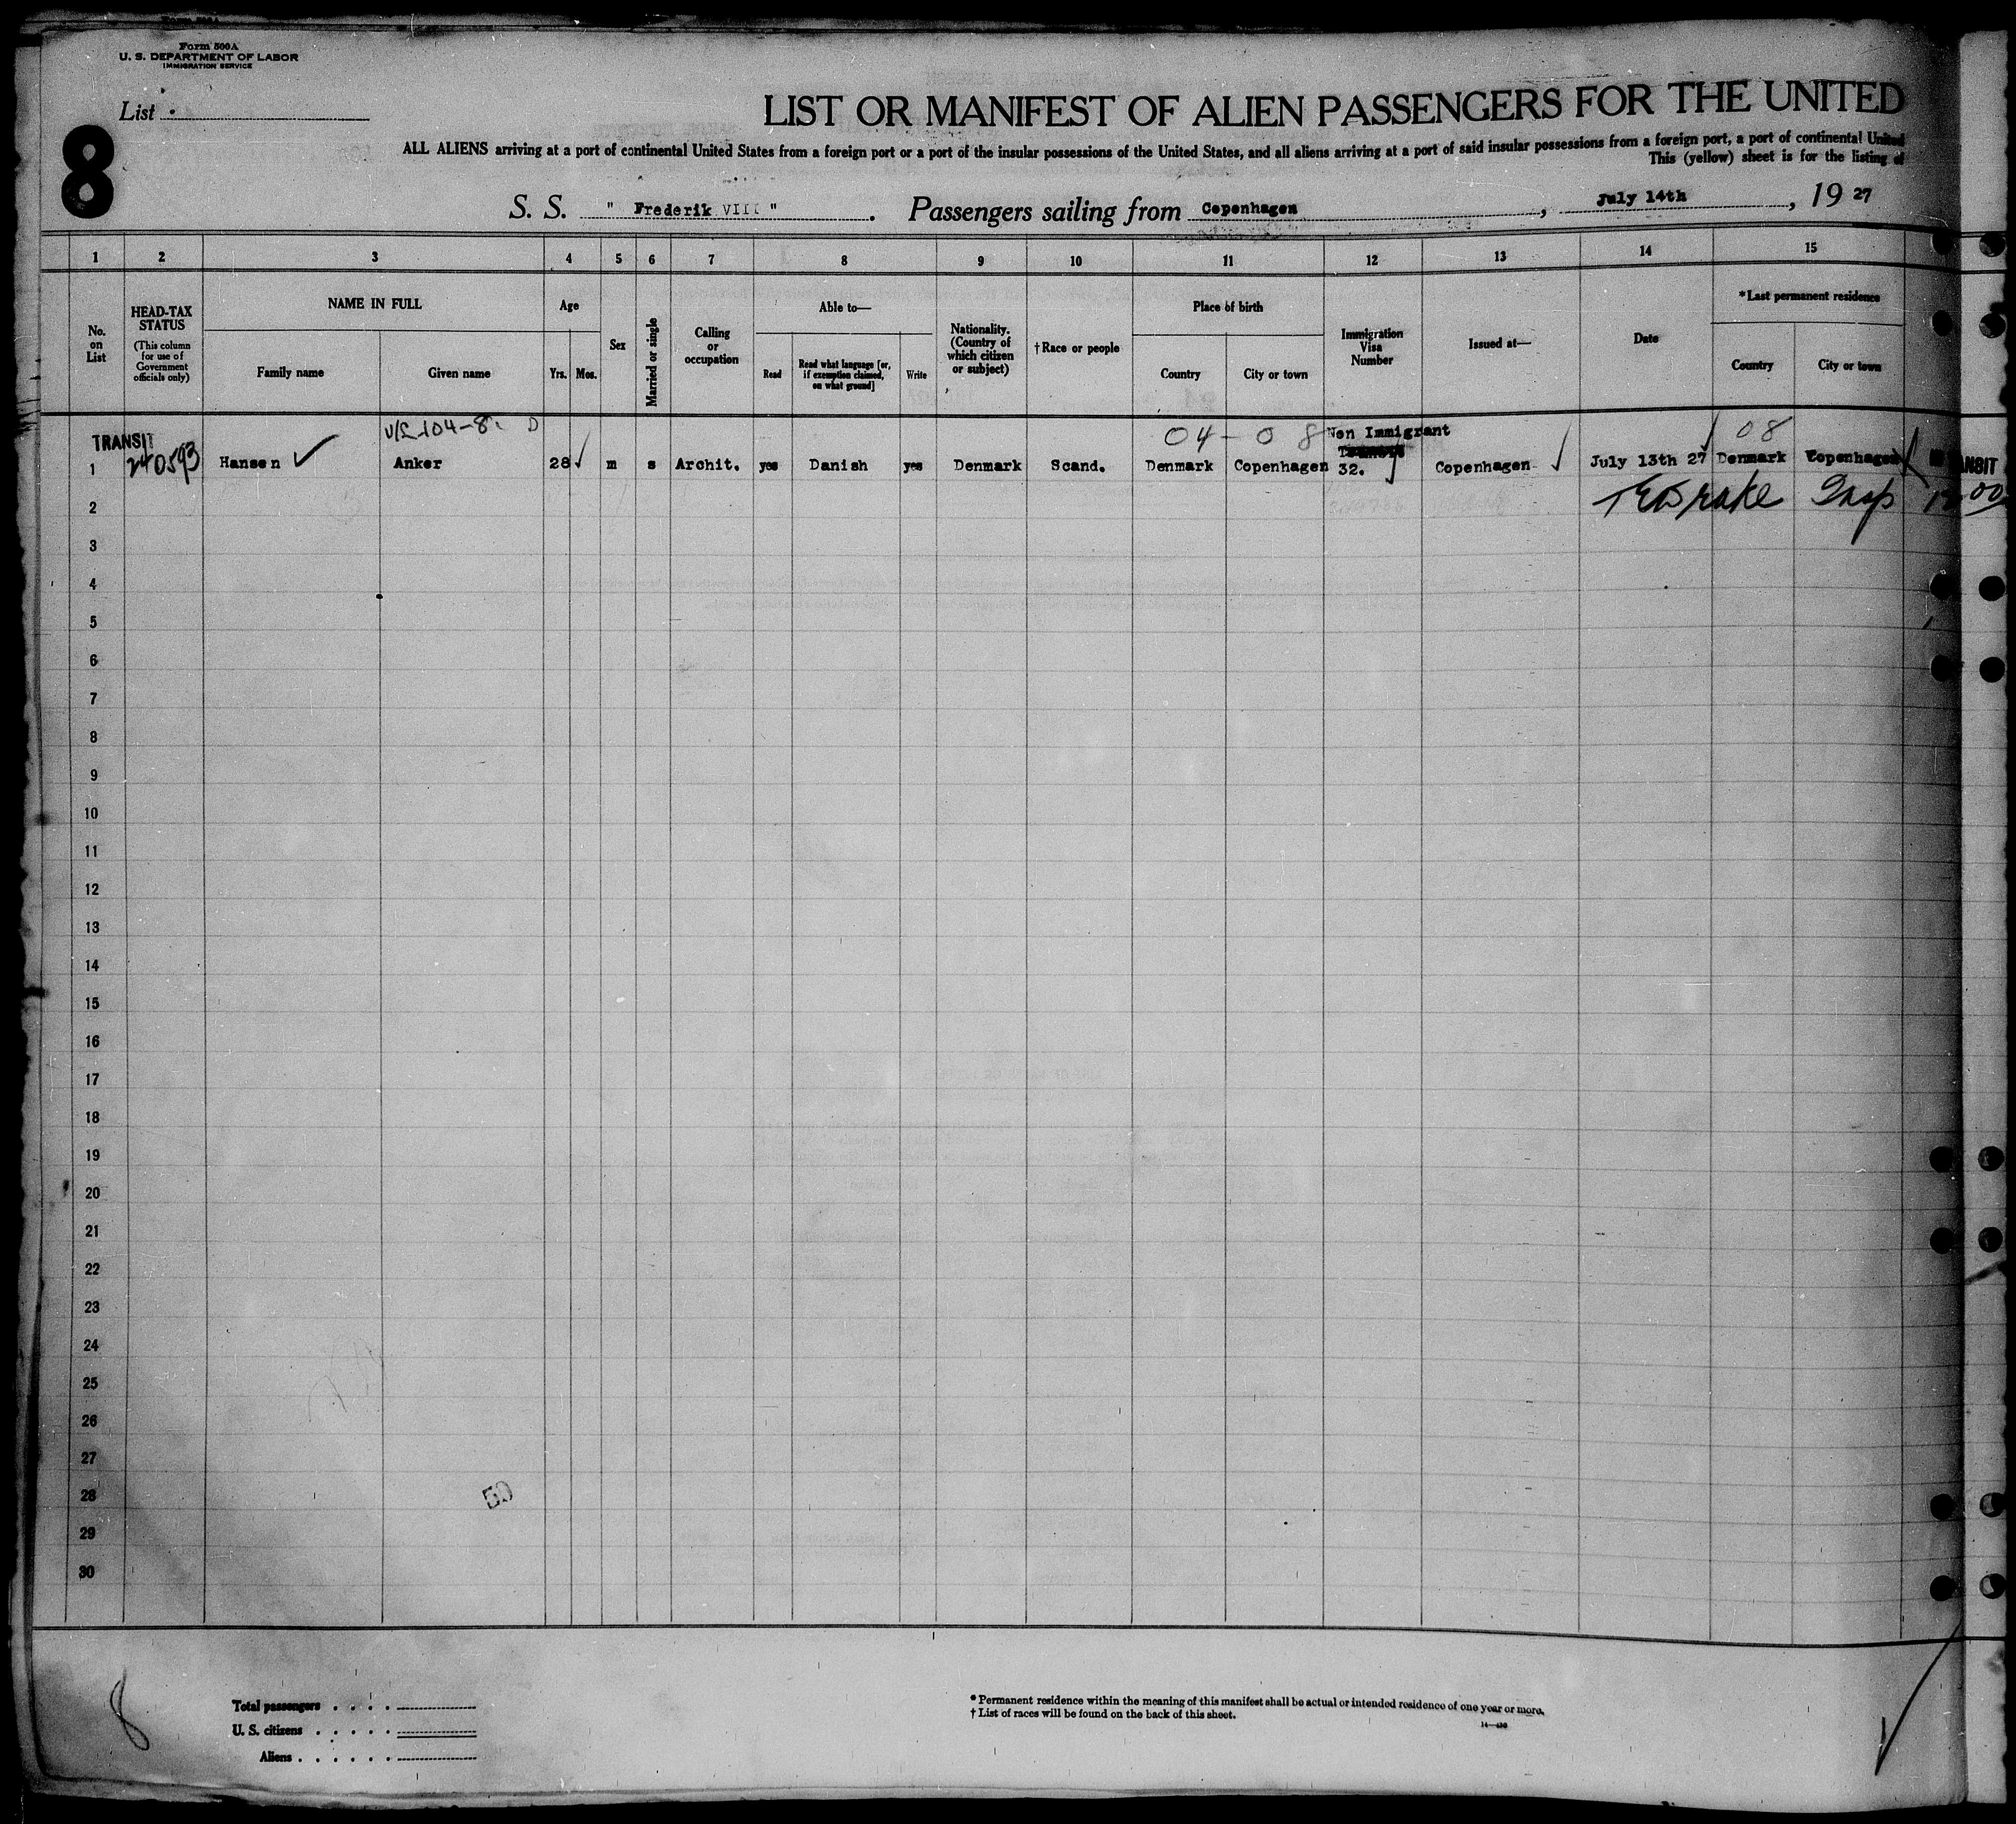 Form 500A
U. S. DEPARTMENT OF LABOR
IMMIGRATION SERVICE
List
8
LIST OR MANIFEST OF ALIEN PASSENGERS FOR THE UNITED
ALL ALIENS arriving at a port of continental United States from a foreign port or a port of the insular possessions of the United States, and all aliens arriving at a port of said insular possessions from a foreign port, a port of continental United
This (yellow) sheet is for the listing of
S. S. " Frederik VIII " . Passengers sailing from Copenhagen , July 14th , 19 27
1 2 3 4 5 6 7 8 9 10 11 12 13 14 15
No. on List
HEAD-TAX STATUS
(This column for use of Government officials only)
NAME IN FULL
Family name Given name
Age
Yrs. Mos.
Sex
Married or single
Calling or occupation
Able to—
Read
Read what language [or, if exemption claimed, on what ground]
Write
Nationality. (Country of which citizen or subject)
†Race or people
Place of birth
Country City or town
Immigration Visa Number
Issued at—
Date
*Last permanent residence
Country City or town
04-08 Non Immigrant 08
TRANSIT
1 240593 Hansen Anker 28 m s Archit. yes Danish yes Denmark Scand. Denmark Copenhagen 32. Copenhagen July 13th 27 Denmark Copenhagen
2 Insp
3
4
5
6
7
8
9
10
11
12
13
14
15
16
17
18
19
20
21
22
23
24
25
26
27
28
29
30
50
8
Total passengers . . . .
U. S. citizens . . . . .
Aliens . . . . . .
* Permanent residence within the meaning of this manifest shall be actual or intended residence of one year or more.
† List of races will be found on the back of this sheet.